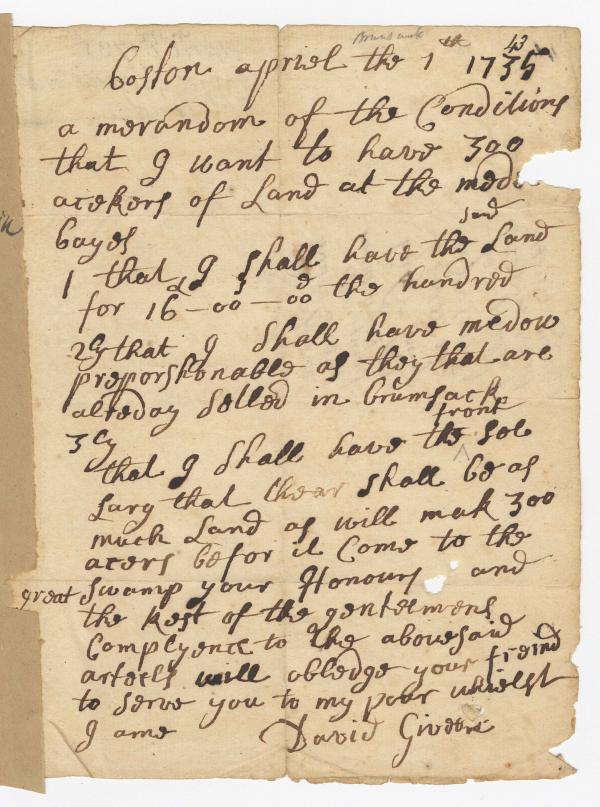 Brunswick
Boston apriel the 1th 1735
43
a merandom of the Conditions
that I want to have 300
acekers of Land at the
bayes
1 that I shall have the said Land
for 16£-00s-00d the hundred
2ly that I Shall have medow
preporshonable as they that are
alreday Selled in brumsack
3ly
that I Shall have the front soe
larg that thear shall be as
much Land as will mak 300
acers befor it Come to the
great Swamp your Honours and
the Rest of the gentelmens
Complyence to the abovesaid
artecls will obledge your freind
to serve you to my poar whielst
I ame David Giveen